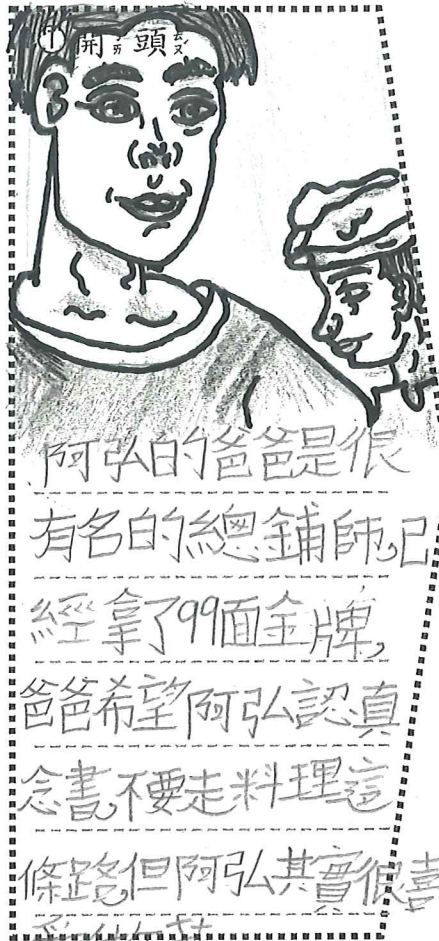 ① 開頭
阿弘的爸爸是很
有名的總鋪師,已
經拿了99面金牌,
爸爸希望阿弘認真
念書,不要走料理這
條路,但阿弘其實很喜